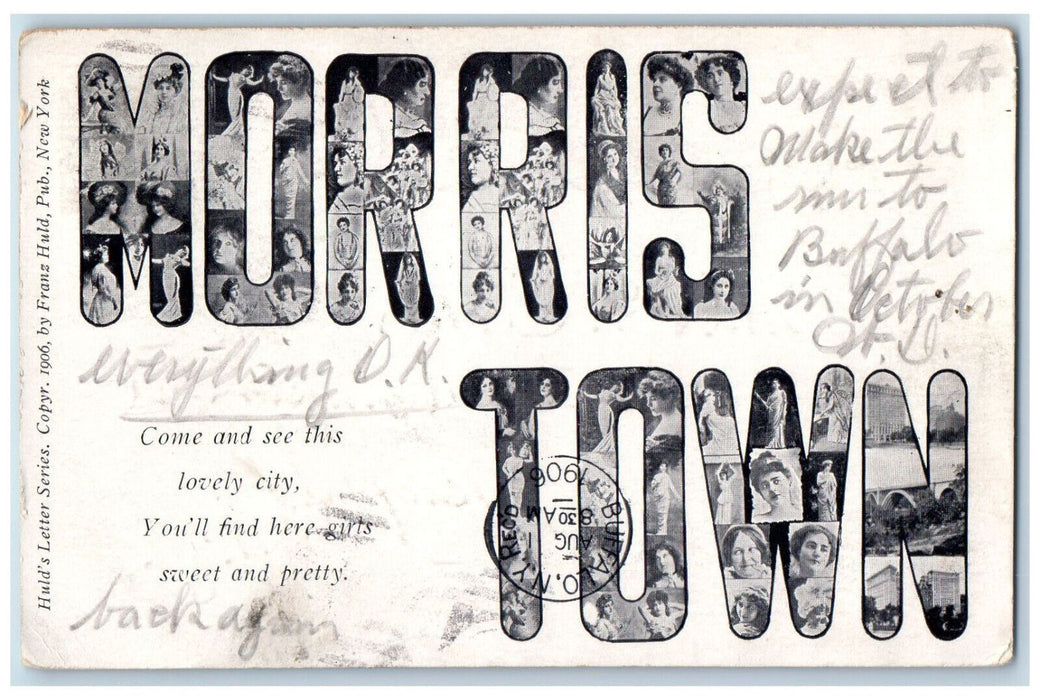 Huld's Letter Series. Copyr. 1906, by Franz Huld, Pub., New York
MORRIS
TOWN
expect to
Make the
run to
Buffalo
in October
everything O.K.
Come and see this
lovely city,
You'll find here girls
sweet and pretty.
back again
BUFFALO, N.Y. REC'D.
AUG 1
8 30 AM
1906